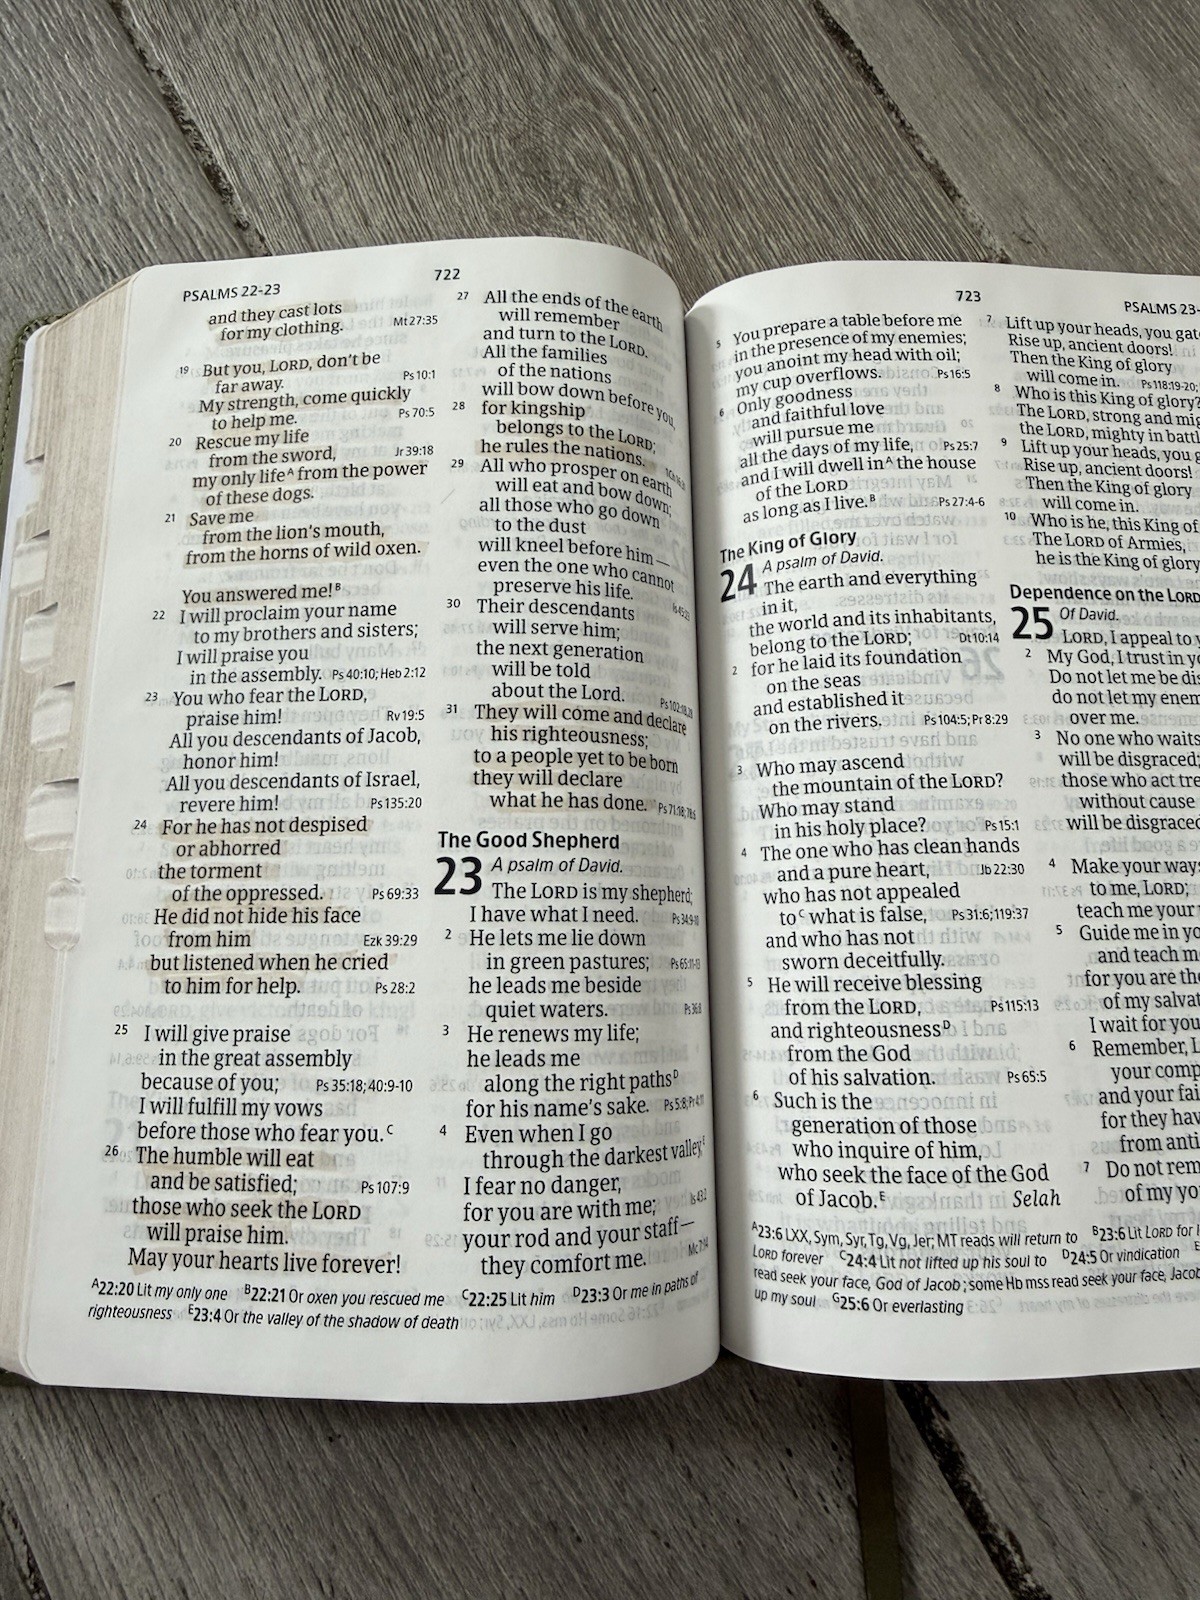 PSALMS 22-23
722
and they cast lots
for my clothing. Mt 27:35
19 But you, LORD, don't be
far away. Ps 10:1
My strength, come quickly
to help me. Ps 70:5
20 Rescue my life
from the sword, Jr 39:18
my only life A from the power
of these dogs.
21 Save me
from the lion's mouth,
from the horns of wild oxen.
You answered me! B
22 I will proclaim your name
to my brothers and sisters;
I will praise you
in the assembly. Ps 40:10; Heb 2:12
23 You who fear the LORD,
praise him! Rv 19:5
All you descendants of Jacob,
honor him!
All you descendants of Israel,
revere him! Ps 135:20
24 For he has not despised
or abhorred
the torment
of the oppressed. Ps 69:33
He did not hide his face
from him Ezk 39:29
but listened when he cried
to him for help. Ps 28:2
25 I will give praise
in the great assembly
because of you; Ps 35:18; 40:9-10
I will fulfill my vows
before those who fear you. C
26 The humble will eat
and be satisfied; Ps 107:9
those who seek the LORD
will praise him.
May your hearts live forever!
27 All the ends of the earth
will remember
and turn to the LORD.
All the families
of the nations
will bow down before you,
28 for kingship
belongs to the LORD;
he rules the nations.
29 All who prosper on earth
will eat and bow down;
all those who go down
to the dust
will kneel before him—
even the one who cannot
preserve his life.
30 Their descendants
will serve him;
the next generation
will be told
about the Lord.
31 They will come and declare
his righteousness;
to a people yet to be born
they will declare
what he has done. Ps 71:18; 78:6
The Good Shepherd
23 A psalm of David.
The LORD is my shepherd;
I have what I need. Ps 34:9-10
2 He lets me lie down
in green pastures; Ps 65:11-13
he leads me beside
quiet waters. Ps 36:8
3 He renews my life;
he leads me
along the right paths D
for his name's sake. Ps 5:8; Pr 4:11
4 Even when I go
through the darkest valley, E
I fear no danger,
for you are with me; Is 43:2
your rod and your staff—
they comfort me. Mc 7:14
A 22:20 Lit my only one B 22:21 Or oxen you rescued me C 22:25 Lit him D 23:3 Or me in paths of
righteousness E 23:4 Or the valley of the shadow of death
723
PSALMS 23-
5 You prepare a table before me
in the presence of my enemies;
you anoint my head with oil;
my cup overflows. Ps 16:5
6 Only goodness
and faithful love
will pursue me
all the days of my life, Ps 25:7
and I will dwell in A the house
of the LORD
as long as I live. B Ps 27:4-6
The King of Glory
24 A psalm of David.
The earth and everything
in it,
the world and its inhabitants,
belong to the LORD; Dt 10:14
2 for he laid its foundation
on the seas
and established it
on the rivers. Ps 104:5; Pr 8:29
3 Who may ascend
the mountain of the LORD?
Who may stand
in his holy place? Ps 15:1
4 The one who has clean hands
and a pure heart, Jb 22:30
who has not appealed
to C what is false, Ps 31:6; 119:37
and who has not
sworn deceitfully.
5 He will receive blessing
from the LORD, Ps 115:13
and righteousness D
from the God
of his salvation. Ps 65:5
6 Such is the
generation of those
who inquire of him,
who seek the face of the God
of Jacob. E Selah
7 Lift up your heads, you gat
Rise up, ancient doors!
Then the King of glory
will come in. Ps 118:19-20;
8 Who is this King of glory?
The LORD, strong and mig
the LORD, mighty in battl
9 Lift up your heads, you g
Rise up, ancient doors!
Then the King of glory
will come in.
10 Who is he, this King of
The LORD of Armies,
he is the King of glory
Dependence on the LORD
25 Of David.
LORD, I appeal to y
2 My God, I trust in yo
Do not let me be dis
do not let my enem
over me.
3 No one who waits
will be disgraced;
those who act tre
without cause
will be disgraced
4 Make your ways
to me, LORD;
teach me your
5 Guide me in yo
and teach m
for you are the
of my salvat
I wait for you
6 Remember, L
your comp
and your fai
for they hav
from anti
7 Do not rem
of my yo
A 23:6 LXX, Sym, Syr, Tg, Vg, Jer; MT reads will return to B 23:6 Lit LORD for l
LORD forever C 24:4 Lit not lifted up his soul to D 24:5 Or vindication E
read seek your face, God of Jacob; some Hb mss read seek your face, Jacob
up my soul G 25:6 Or everlasting